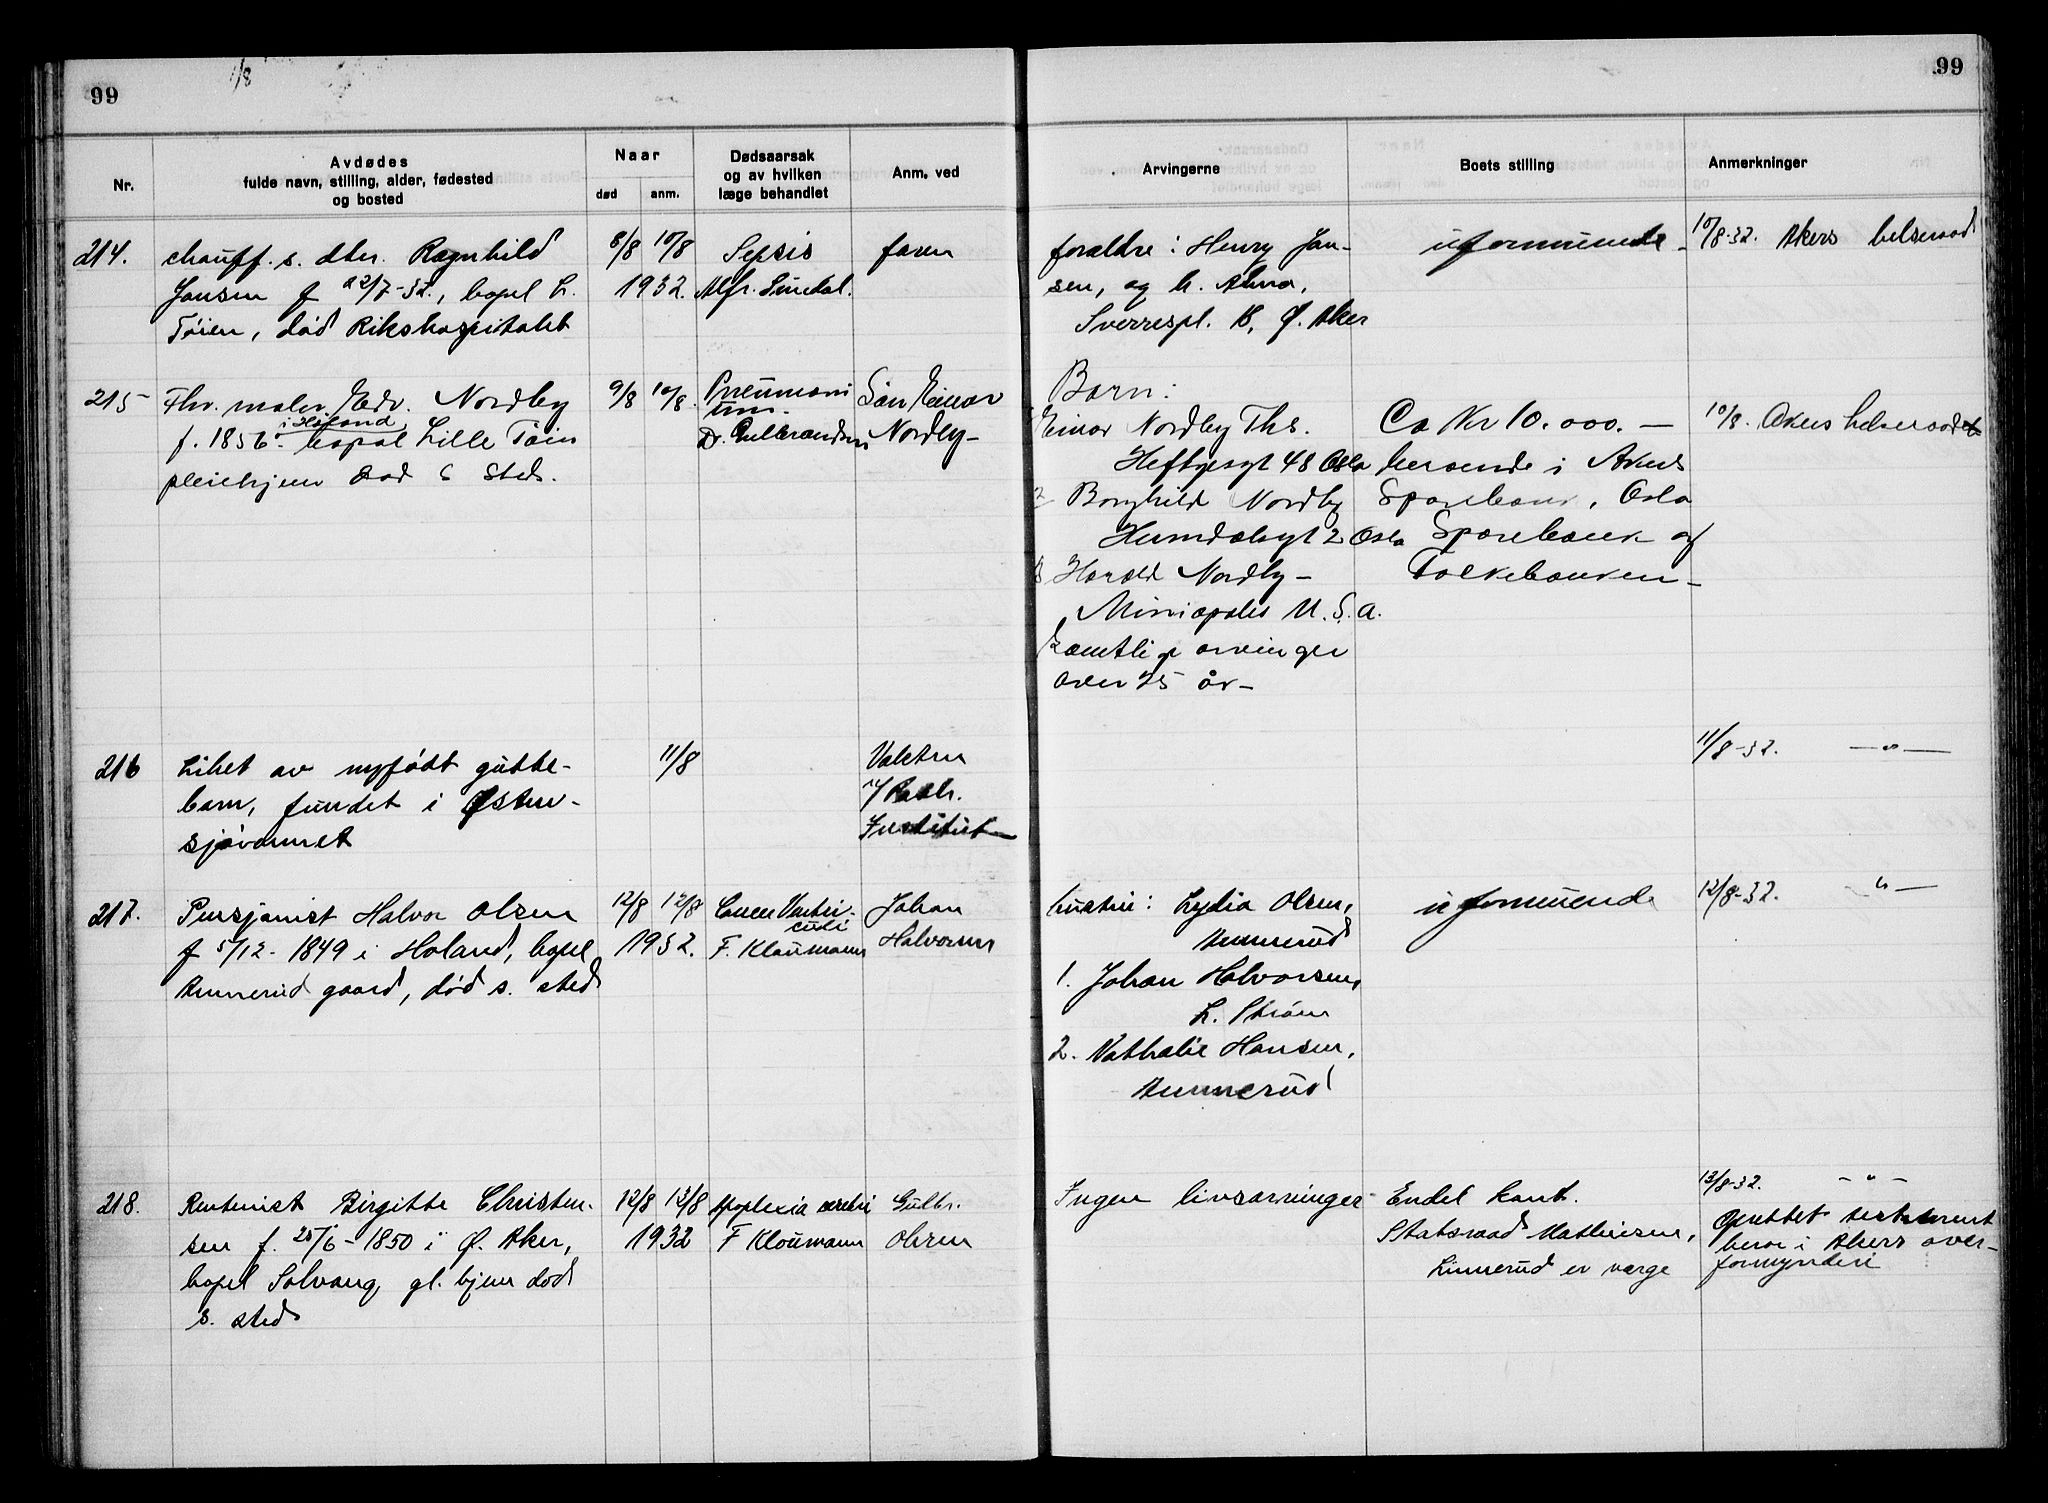 1/8
99
99
Nr.
Avdødes
fulde navn, stilling, alder, fødested
og bosted
Naar
død
anm.
Dødsaarsak
og av hvilken
læge behandlet
Anm. ved
Arvingerne
Boets stilling
Anmerkninger
214.
chauff. s. dter. Ragnhild
Jansen f 22/7-32., bopel L.
Tøien, død Rikshospitalet
8/8 10/8
1932.
Sepsis
Alfr. Sundal.
faren
foraldre: Henry Jan-
sen, og h. Alma,
Sverrespl. 18, Ø. Aker
uformuende
10/8-32. Akers helseraad
215
Fhv. maler Edv. Nordby
i Høland
f. 1856 bopal Lille Tøin
pleiehjem Død s Sted.
9/8 10/8.
Pneumoni
Dr. Gulbrandsen
Søn Einar
Nordby
Barn:
Einar Nordby Ths.
Heftyesgt 48 Oslo
2 Borghild Nordby
Hunndalsgt 2 Oslo
3 Harald Nordby -
Miniapolis U.S.A.
Samtlige arvinger
over 25 år -
Ca Kr 10.000. —
beroende i Akers
Sparebank, Oslo
Sparebank og
Folkebanken -
10/8. Akers helseraad
216
Liket av nyfødt gutte-
barn, fundet i Østen-
sjøvannet
11/8
Vakten
v/ Path.
Institut
11/8-32. —"—
217.
Pensjonist Halvor Olsen
f 5/12-1849 i Høland, bopel
Annerud gaard, død s. sted
12/8 12/8
1932.
Cancer Ventri-
culi
F. Kloumann
Johan
Halvorsen
hustru: Lydia Olsen,
Annerud
1. Johan Halvorsen,
L. Strøm
2. Nathalie Hansen,
Annerud
uformuende
12/8-32. —"—
218.
Rentenist Birgitte Christen-
sen f. 25/6-1850 i Ø. Aker,
bopel Solvang gl. hjem død
s. sted
12/8 13/8
1932
Apoplexia cerebri
F Kloumann
Gulbr.
Olsen
Ingen livsarvinger
Endel kont.
Statsraad Mathiesen,
Linnerud er værge
13/8-32. -"-
Oprettet testament
beror i Akers over-
formynderi